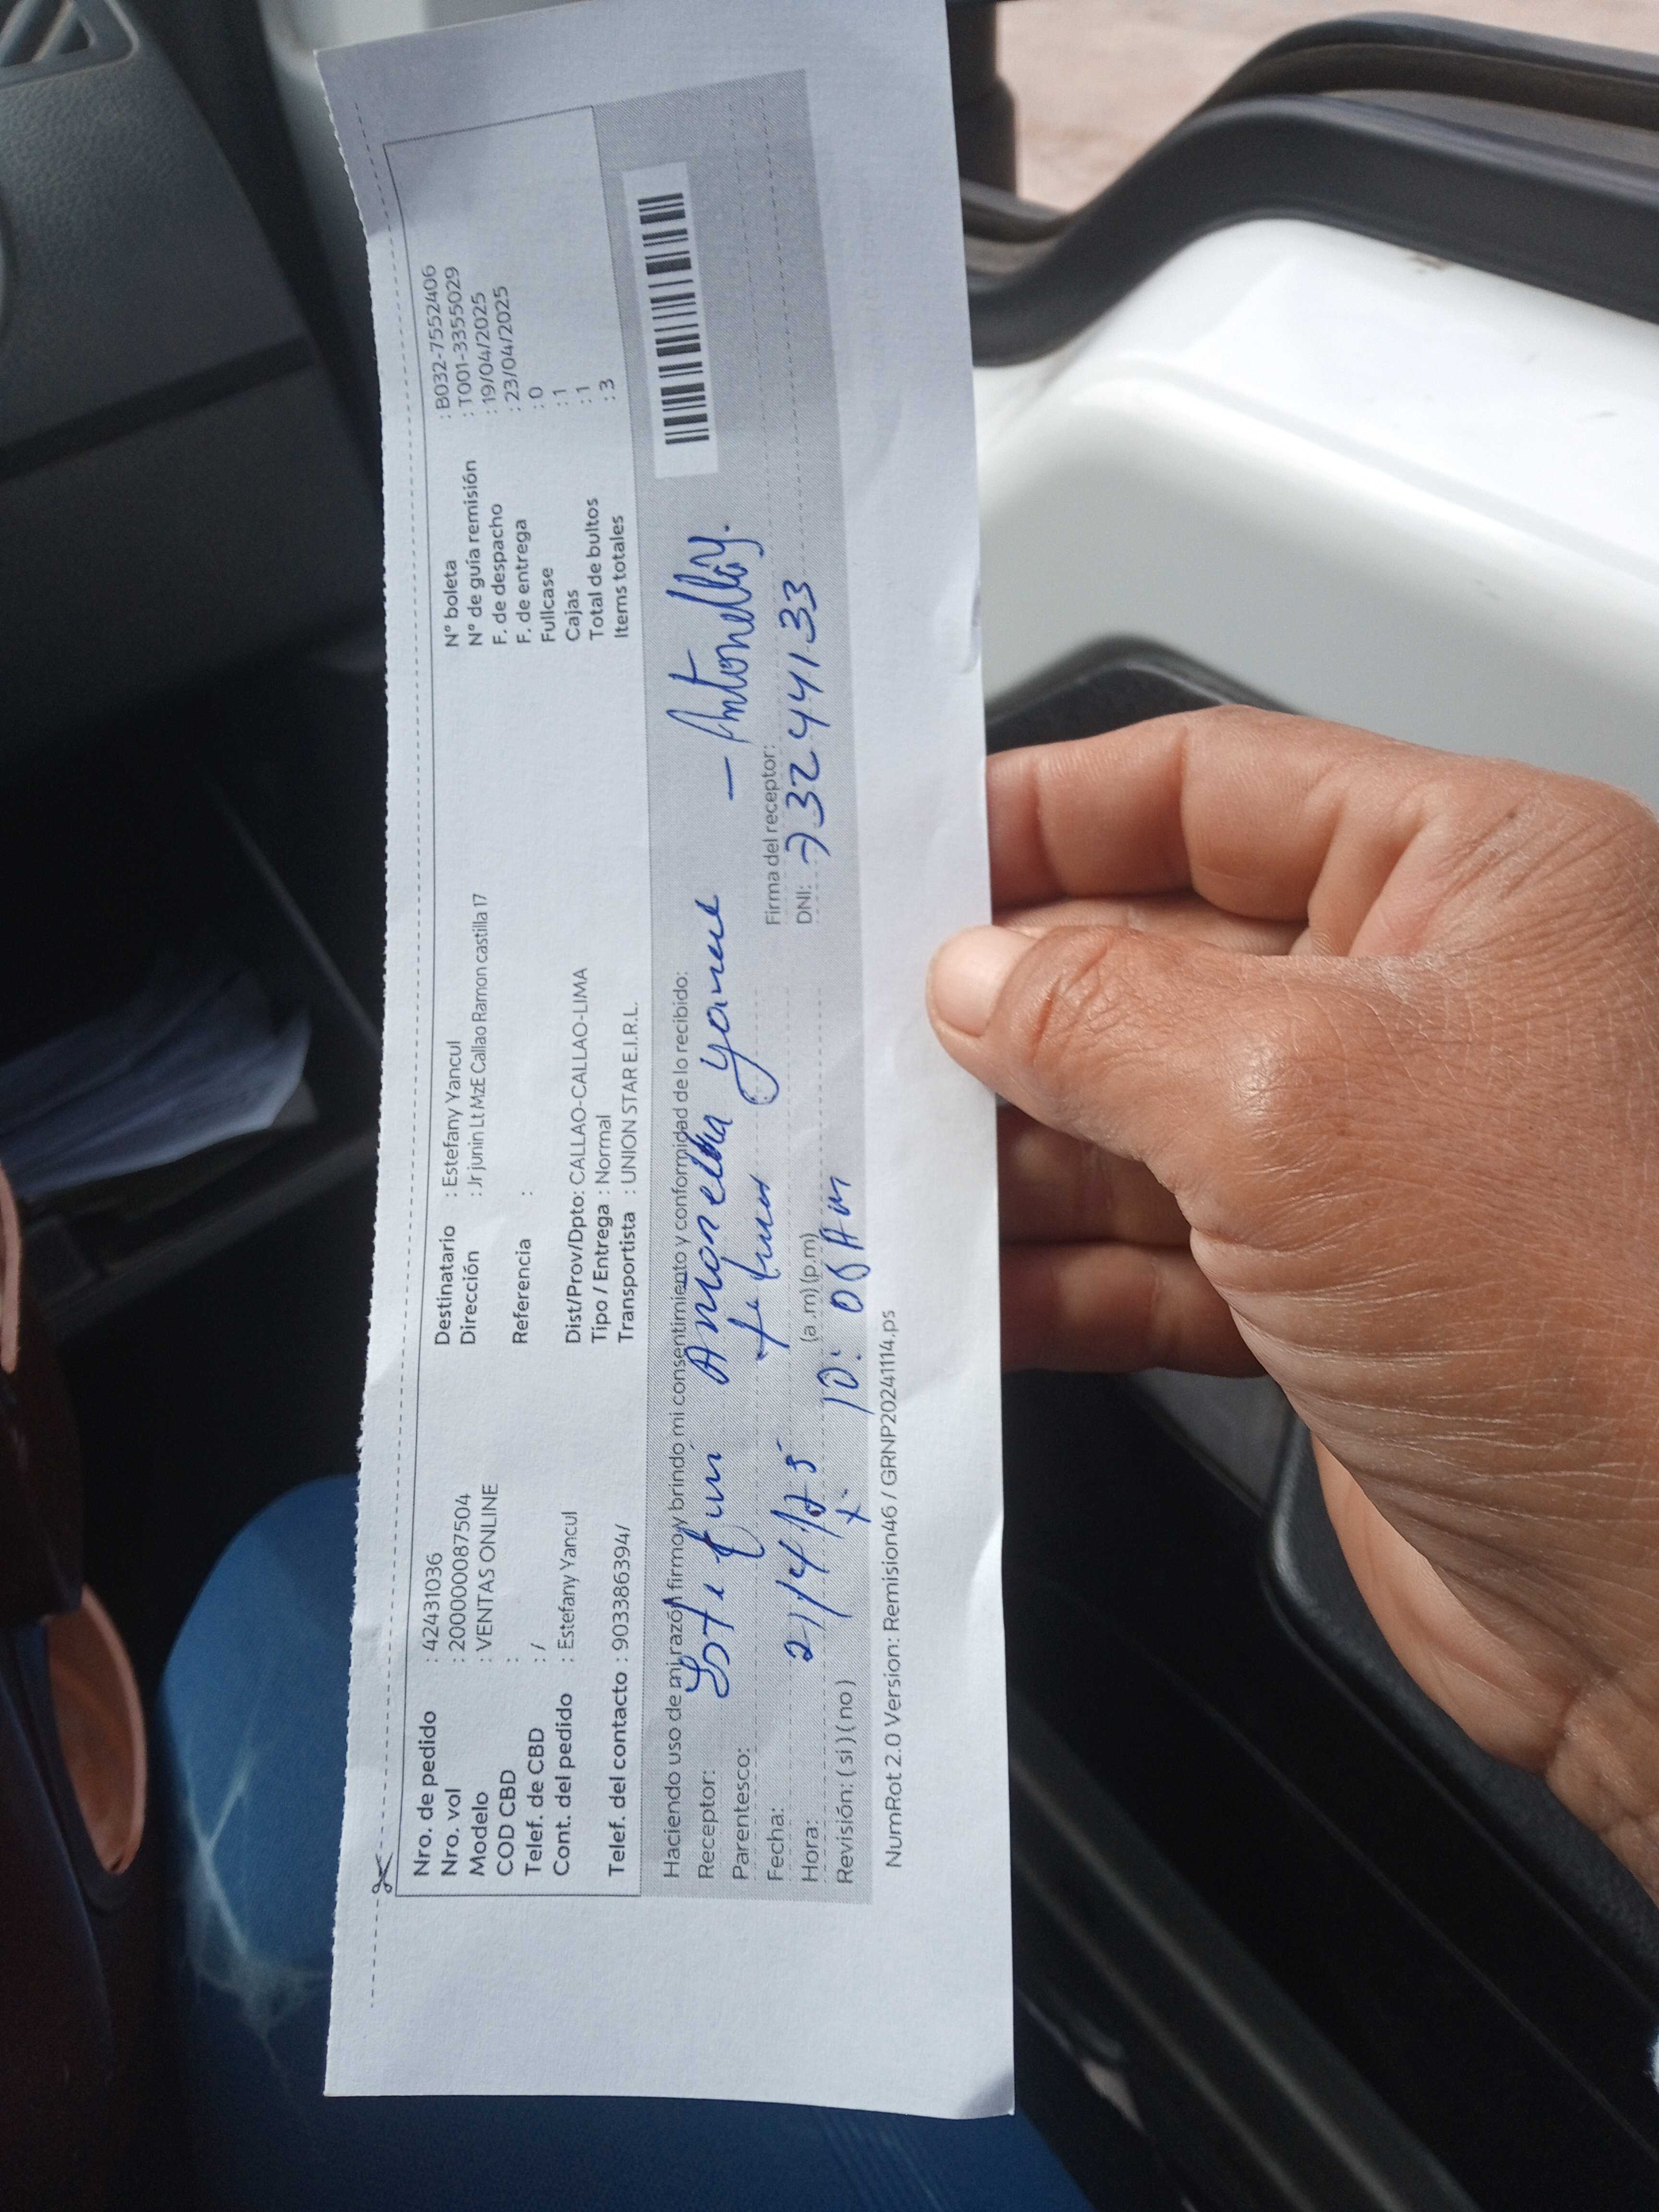 Nro. de pedido : 42431036
Nro. vol : 20000087504
Modelo : VENTAS ONLINE
COD CBD :
Telef. de CBD : /
Cont. del pedido : Estefany Yancul
Telef. del contacto : 903386394/
Destinatario : Estefany Yancul
Dirección : Jr junin Lt MzE Callao Ramon castilla 17
Referencia :
Dist/Prov/Dpto: CALLAO-CALLAO-LIMA
Tipo / Entrega : Normal
Transportista : UNION STAR E.I.R.L.
N° boleta : B032-7552406
N° de guía remisión : T001-3355029
F. de despacho : 19/04/2025
F. de entrega : 23/04/2025
Fullcase : 0
Cajas : 1
Total de bultos : 1
Items totales : 3
Haciendo uso de mi razón firmo y brindo mi consentimiento y conformidad de lo recibido:
Receptor:
Parentesco:
Fecha: 21/4/25
Hora: 10:06 Am (a.m) (p.m)
Revisión: ( si ) ( no )
Firma del receptor:
DNI: 73244133
NumRot 2.0 Version: Remision46 / GRNP20241114.ps